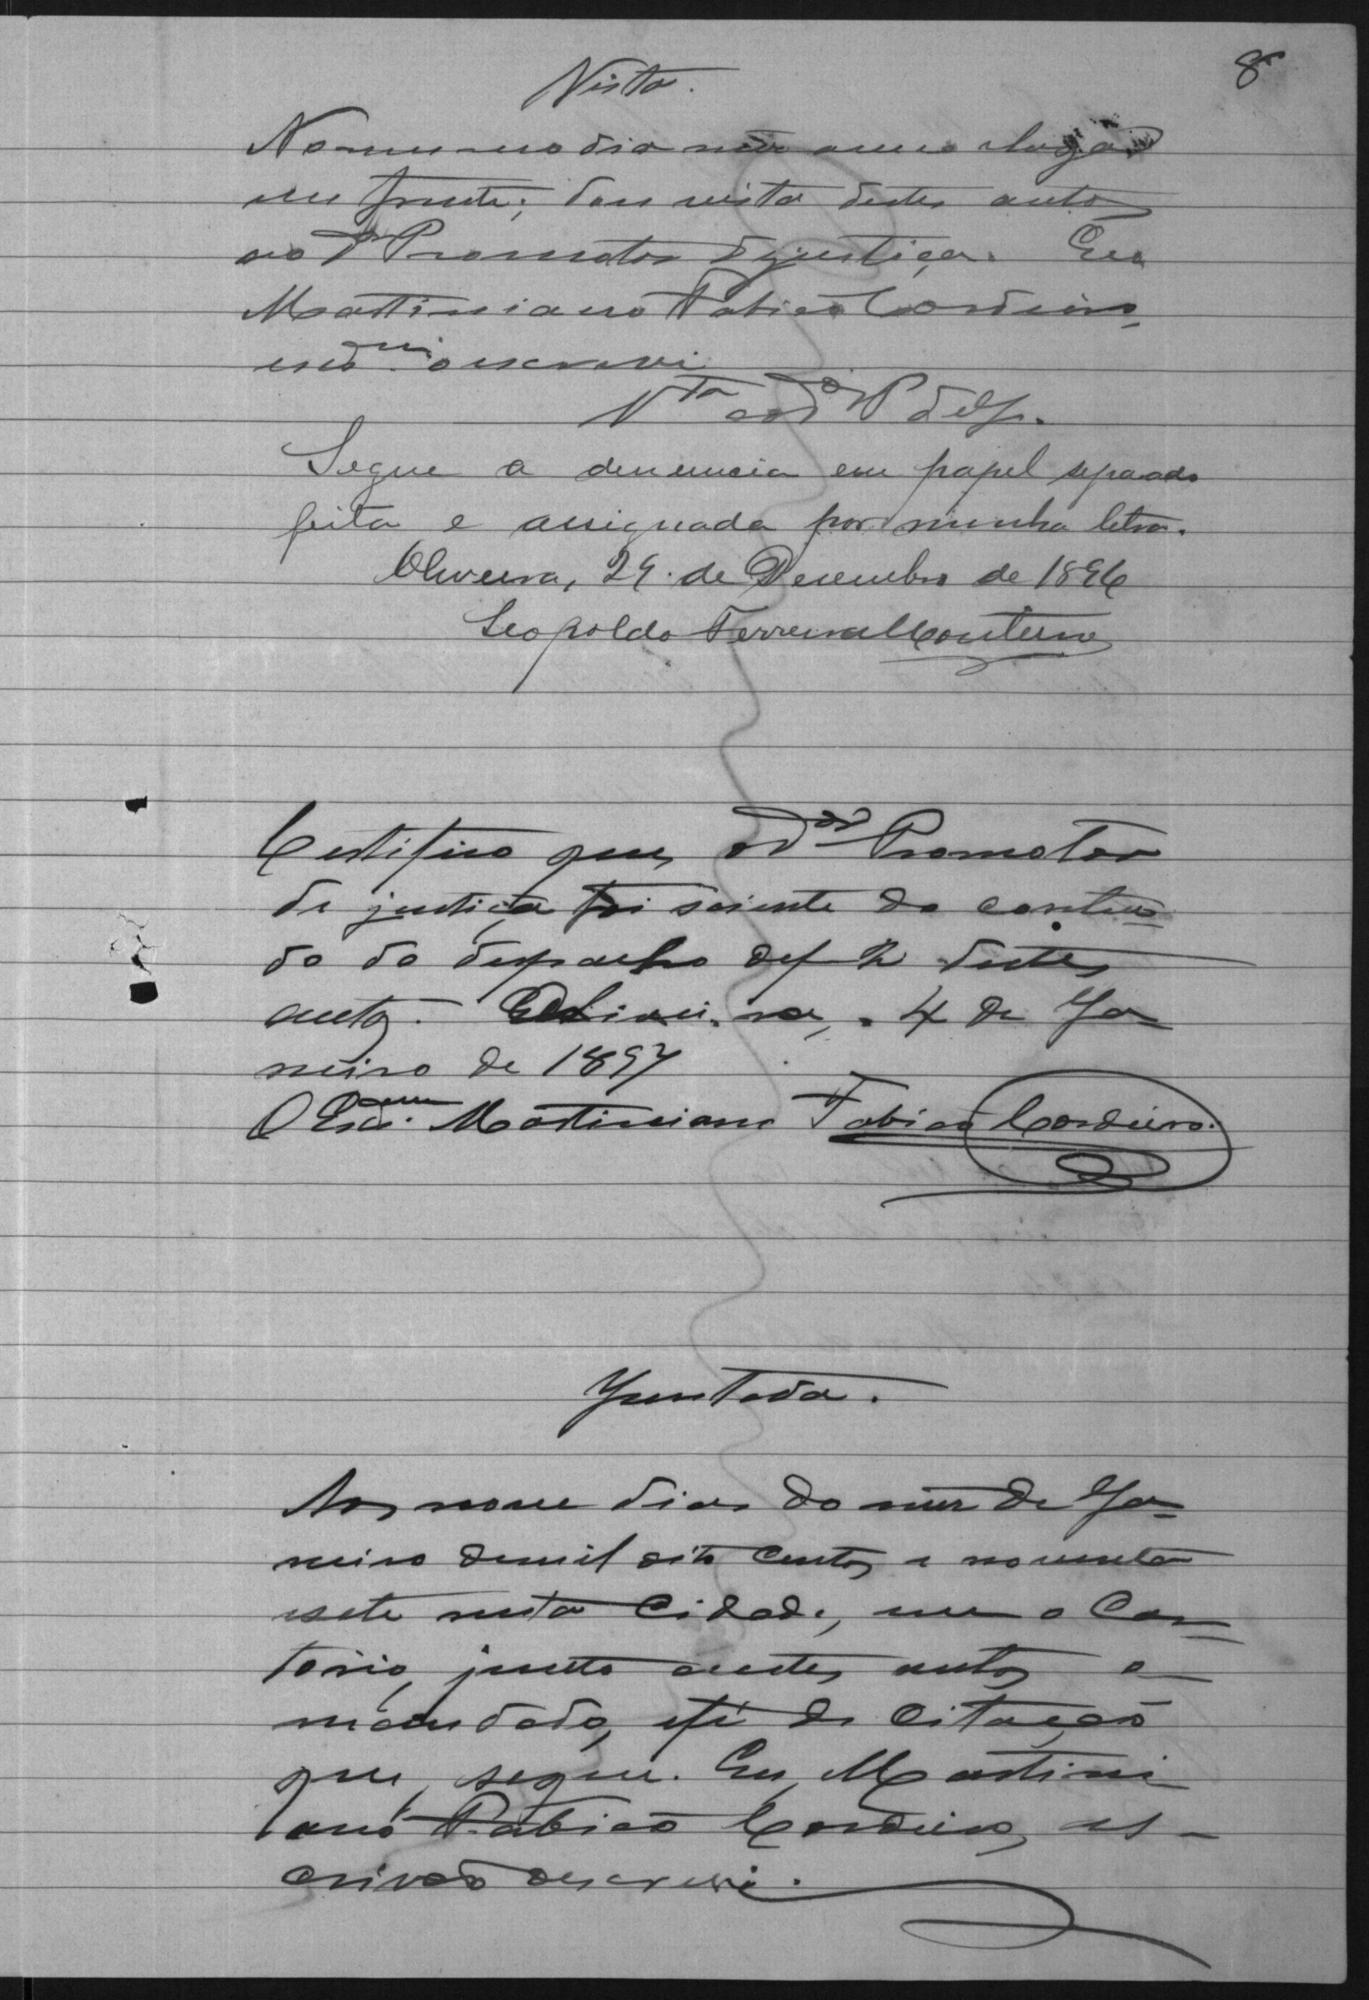 8
Vista.
No mesmo dia mes anno e lugar
em frente; dou vista destes autos
ao Dr Promotor de justiça. Eu
Martiniano Fabião Cordeiro,
escam. o escrevi
Vta ao Dor P de J.
Segue a denuncia em papel separado
feita e assignada por minha letra.
Oliveira, 29 de Dezembro de 1896
Leopoldo Ferreira Monteiro
Certifico que o Dor Promotor
de justiça foi sciente do conteu=
do do despacho de f 2 destes
autos. Oliveira, 4 de Ja=
neiro de 1897
O Escam. Martiniano Fabião Cordeiro.
Juntada.
Aos nove dias do mez de Ja=
neiro de mil oito centos e noventa
e sete nesta Cidade, em o Car=
torio, junto a estes autos o
mandado, e fé de Citação
que segue. Eu, Martini
ano Fabião Cordeiro, es-
crivão o escrevi.